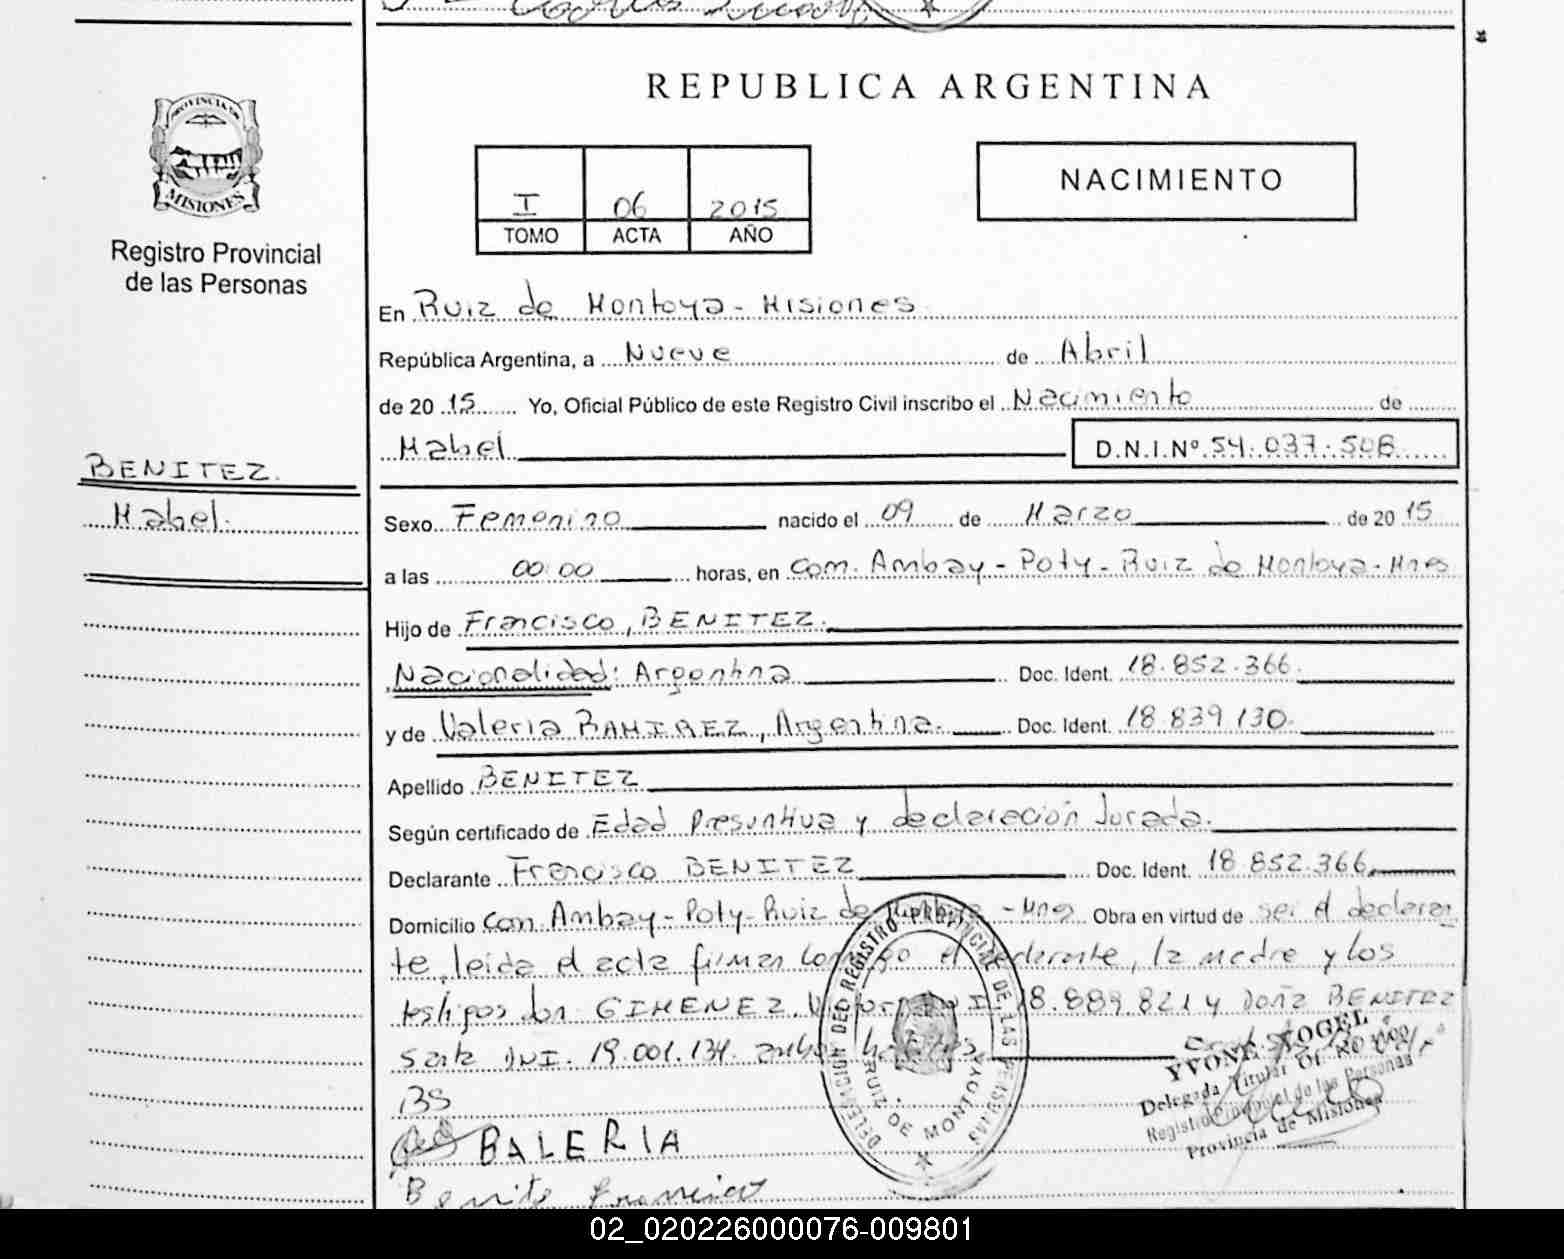 REPUBLICA ARGENTINA
PROVINCIA DE
MISIONES
Registro Provincial
de las Personas
I 06 2015
TOMO ACTA AÑO
NACIMIENTO
En Ruiz de Montoya - Misiones
República Argentina, a Nueve de Abril
de 20 15 Yo, Oficial Público de este Registro Civil inscribo el Nacimiento de
Mabel D.N.I.Nº 54.037.508
BENITEZ.
Mabel.
Sexo Femenino nacido el 09 de Marzo de 20 15
a las 00:00 horas, en Com. Ambay - Poty - Ruiz de Montoya - Mnes
Hijo de Francisco, BENITEZ.
Nacionalidad: Argentina Doc. Ident. 18.852.366.
y de Valeria RAMIREZ, Argentina. Doc. Ident. 18.839.130.
Apellido BENITEZ
Según certificado de Edad Presuntiva y declaración Jurada.
Declarante Francisco BENITEZ Doc. Ident. 18.852.366
Domicilio Com Ambay - Poty - Ruiz de Montoya - Mnes Obra en virtud de ser el declaran
te, leida el acta firman conmigo el declarante, la madre y los
testigos don GIMENEZ, 18.889.821 y Doña BENITEZ
DNI. 19.001.134. ambos
BS
BALERIA
Benite
DELEGACION DEL REGISTRO PROVINCIAL DE LAS PERSONAS
RUIZ DE MONTOYA
YVONE VOGEL
Delegada Titular
Registro Provincial de las Personas
Provincia de Misiones
02_020226000076-009801